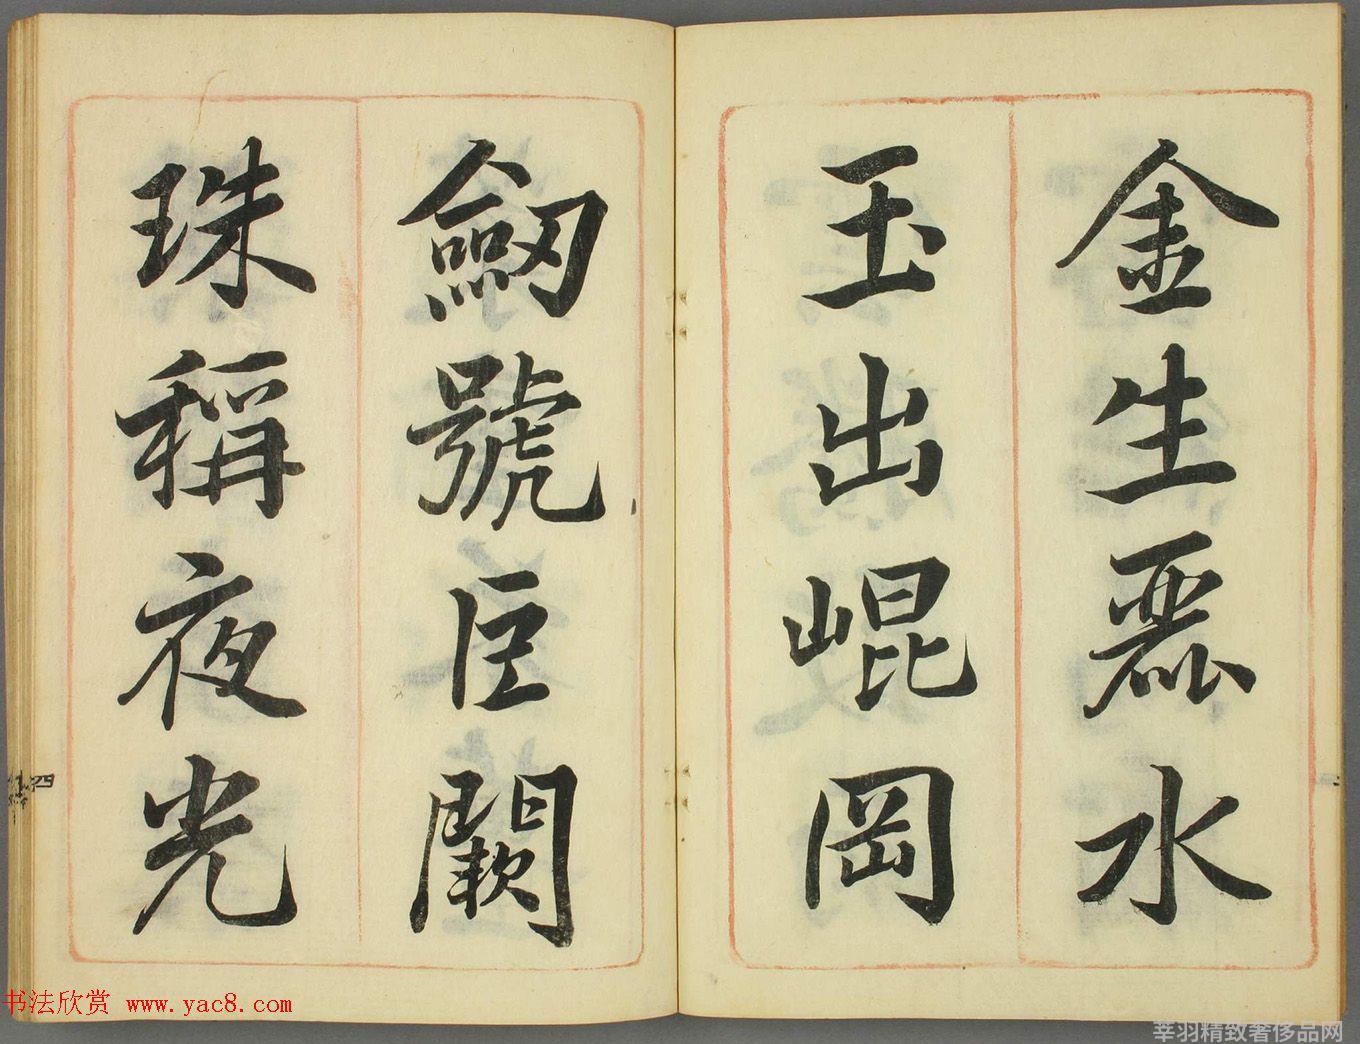 金生麗水
玉出崐岡
劒號巨闕
珠稱夜光
四
书法欣赏 www.yac8.com
莘羽精致奢侈品网